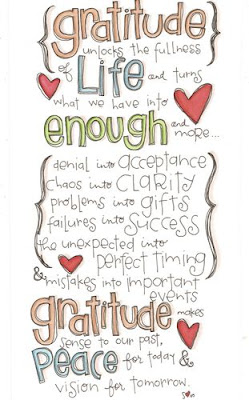 gratitude
unlocks the fullness
of Life and turns
what we have into
enough and
more...
denial into acceptance
chaos into CLARITY
problems into gifts
failures into SUCCESS
the unexpected into
perfect timing
& mistakes into important
events
gratitude makes
sense to our past,
Peace for today &
vision for tomorrow.